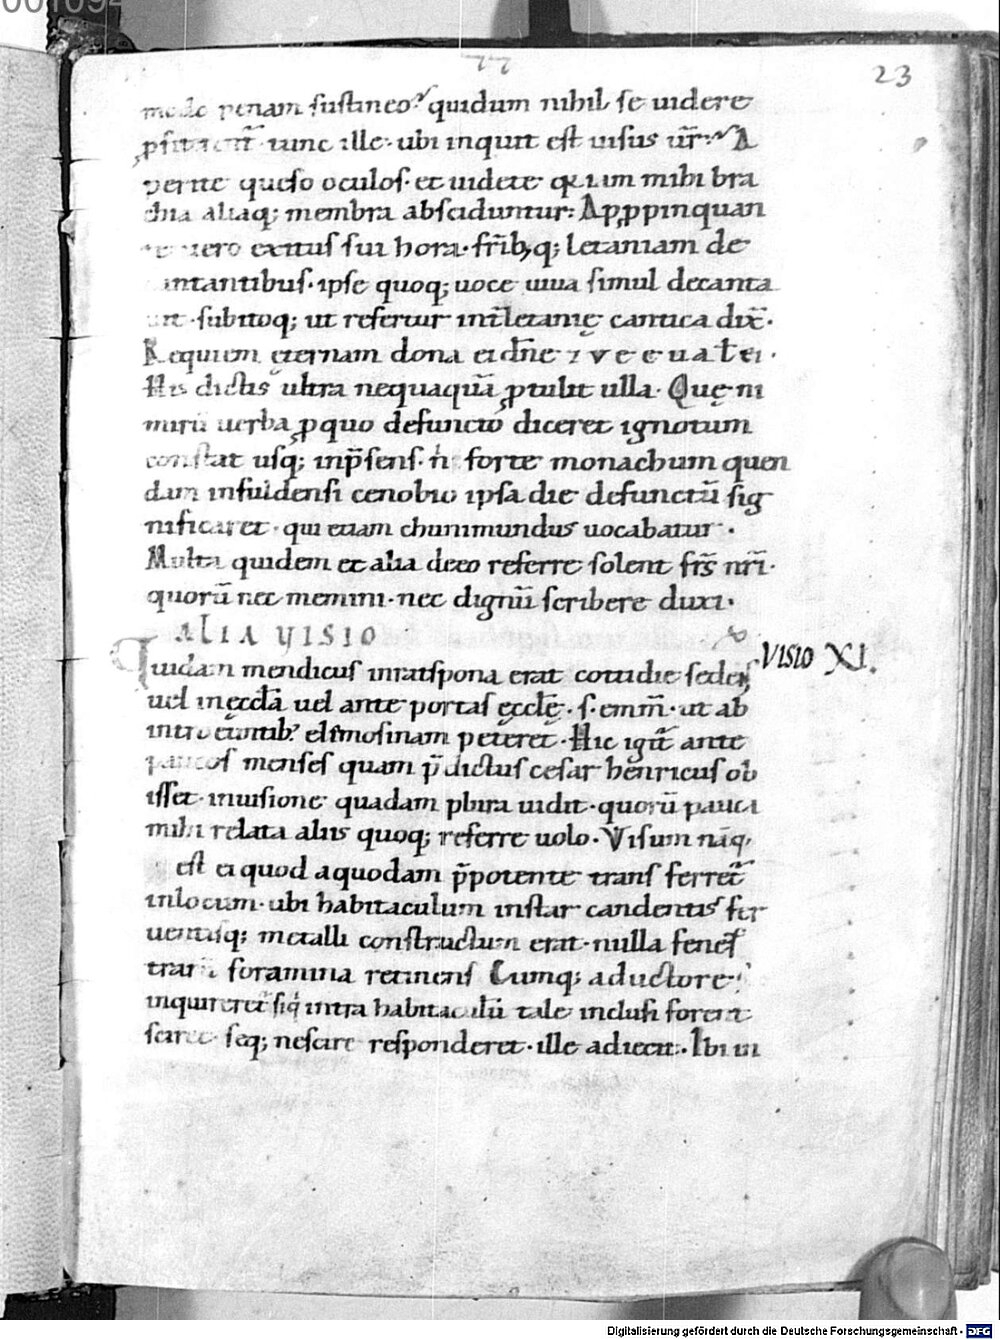 23
modo penam sustineo? quidum nihil se uidere
tunc ille· ubi inquit est uisus ur̄: A
perite queso oculos· et uidete quam mihi bra
chia aliaq; membra absciduntur: Apꝓpinquan
uero exitus sui hora· fr̄ib; q; letaniam de
cantantibus· ipse quoq; uoce uiua simul decanta
subitoq; ut refertur int̄ letanię cantica dix̄·
Requiem ęternam dona ei dn̄e ⁊ v e e u a t̄ ei·
His dictis ultra nequaquā ꝓtulit ulla· Quę ni
mirū uerba ꝓ quo defuncto diceret ignotum
constat usq; inp̄sens· forte monachum quen
dam infuldensi cenobio ipsa die defunctū sig
nificaret· qui etiam chunimundus uocabatur·
Multa quidem et alia de eo referre solent fr̄s nr̄i·
quorū nec memini· nec dignū scribere duxi·
ALIA VISIO
VISIO XI.
Quidam mendicus inratispona erat cottidie sedens
uel inęccl̄a uel ante portas ęccl̄ę· s· emm̄· ut ab
introeuntib; elimosinam peteret· Hic igit̄ ante
paucos menses quam p̄dictus cesar henricus ob
isset· inuisione quadam plura uidit· quorū pauca
mihi relata aliis quoq; referre uolo· Visum nāq;
est ei quod aquodam p̄potente trans ferret̄
inlocum· ubi habitaculum instar candentis fer
uentisq; metalli constructum erat· nulla fenes
trarū foramina retinens Cumq; aductore
inquireret̄ siq̄ intra habitaculū tale inclusi forent
sciret· seq; nescire responderet· ille adiecit·. Ibi in
Digitalisierung gefördert durch die Deutsche Forschungsgemeinschaft - DFG